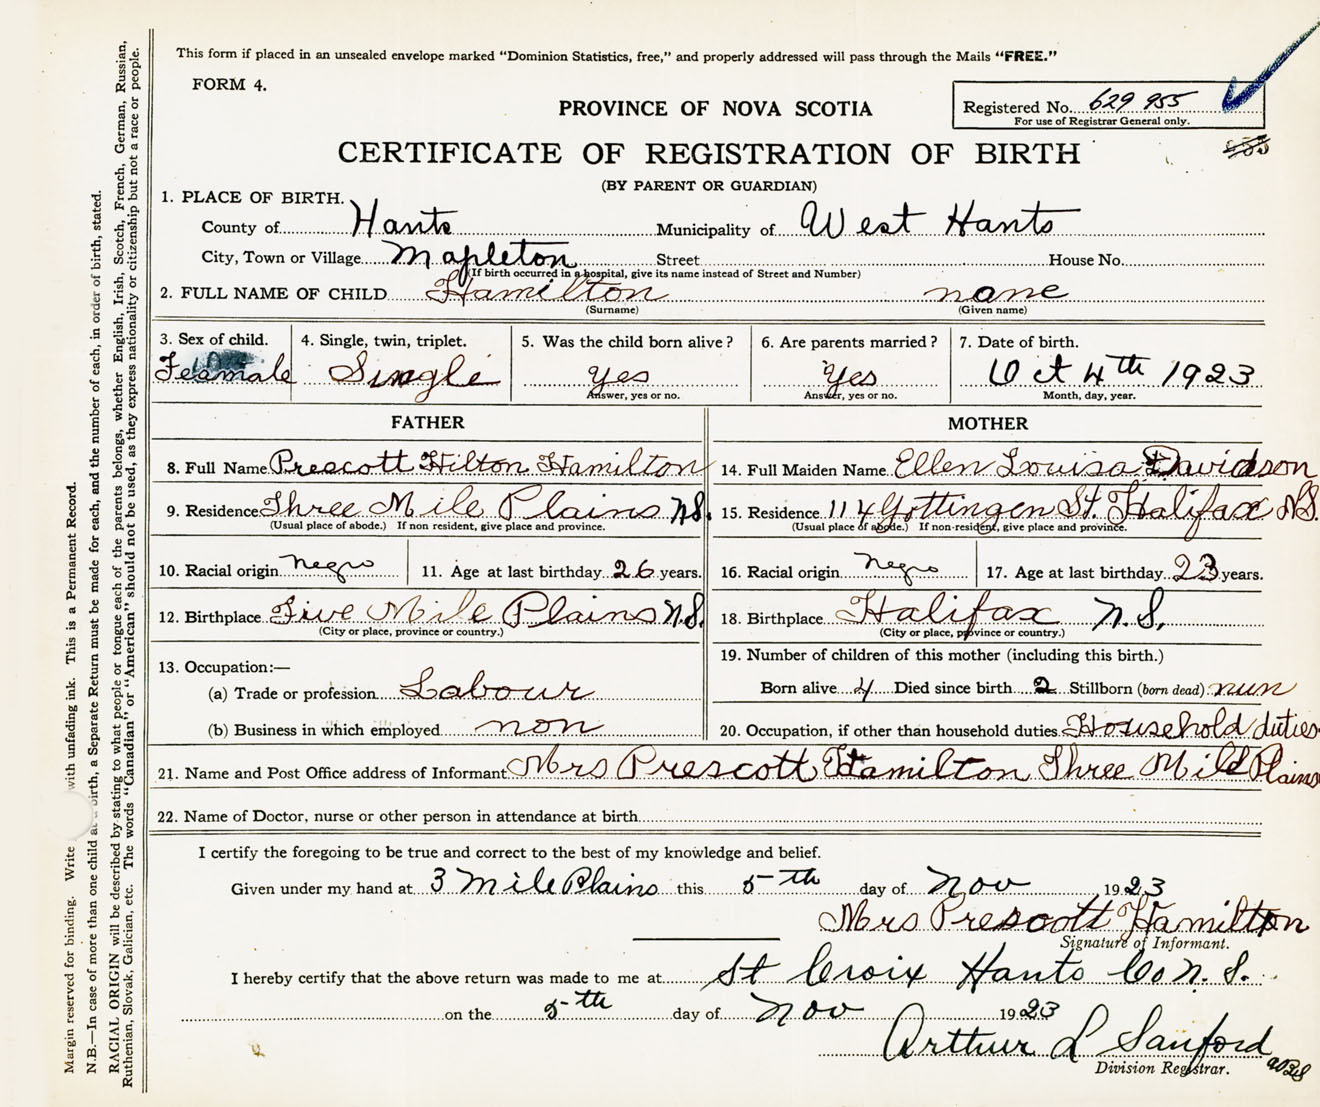 This form if placed in an unsealed envelope marked “Dominion Statistics, free,” and properly addressed will pass through the Mails “FREE.”
FORM 4.
PROVINCE OF NOVA SCOTIA
Registered No. 629 955
For use of Registrar General only.
CERTIFICATE OF REGISTRATION OF BIRTH
(BY PARENT OR GUARDIAN)
1. PLACE OF BIRTH.
County of Hants Municipality of West Hants
City, Town or Village Mapleton Street House No.
(If birth occurred in a hospital, give its name instead of Street and Number)
2. FULL NAME OF CHILD Hamilton none
(Surname) (Given name)
3. Sex of child. 4. Single, twin, triplet. 5. Was the child born alive? 6. Are parents married? 7. Date of birth.
Feamale Single yes Yes Oct 4th 1923
Answer, yes or no. Answer, yes or no. Month, day, year.
FATHER MOTHER
8. Full Name Prescott Hilton Hamilton 14. Full Maiden Name Ellen Louisa Davidson
9. Residence Three Mile Plains N.S. 15. Residence 114 Gottingen St. Halifax N.S.
(Usual place of abode.) If non resident, give place and province. (Usual place of abode.) If non-resident, give place and province.
10. Racial origin Negro 11. Age at last birthday 26 years. 16. Racial origin Negro 17. Age at last birthday 23 years.
12. Birthplace Five Mile Plains N.S. 18. Birthplace Halifax N.S.
(City or place, province or country.) (City or place, province or country.)
13. Occupation:— 19. Number of children of this mother (including this birth.)
(a) Trade or profession Labour Born alive 4 Died since birth 2 Stillborn (born dead) nun
(b) Business in which employed non 20. Occupation, if other than household duties Household duties
21. Name and Post Office address of Informant Mrs Prescott Hamilton Three Mild Plains
22. Name of Doctor, nurse or other person in attendance at birth
I certify the foregoing to be true and correct to the best of my knowledge and belief.
Given under my hand at 3 Mile Plains this 5th day of Nov 1923
Mrs Prescott Hamilton
Signature of Informant.
I hereby certify that the above return was made to me at St Croix Hants Co N.S.
on the 5th day of Nov 1923
Arthur L Sanford
Division Registrar.
Margin reserved for binding. Write with unfading ink. This is a Permanent Record.
N.B.—In case of more than one child at birth, a Separate Return must be made for each, and the number of each, in order of birth, stated.
RACIAL ORIGIN will be described by stating to what people or tongue each of the parents belongs, whether English, Irish, Scotch, French, German, Russian,
Ruthenian, Slovak, Galician, etc. The words “Canadian” or “American” should not be used, as they express nationality or citizenship but not a race or people.